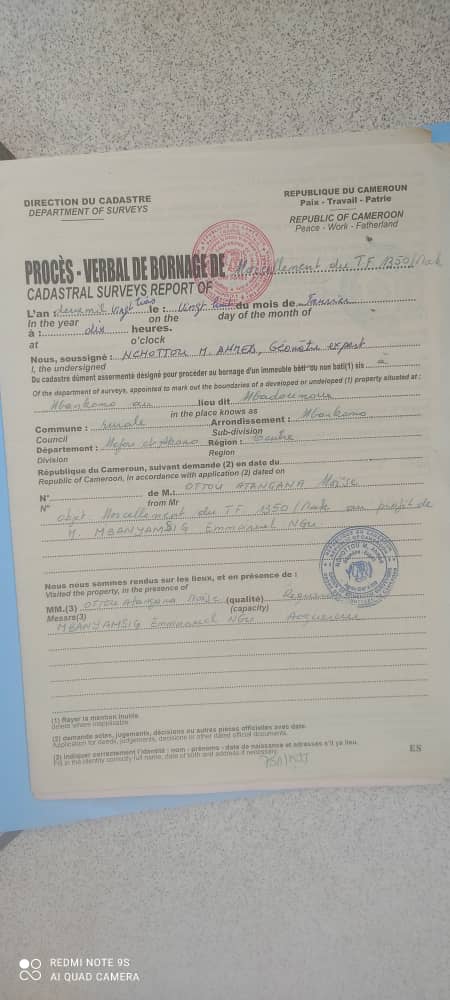 DIRECTION DU CADASTRE
DEPARTMENT OF SURVEYS
REPUBLIQUE DU CAMEROUN
Paix - Travail - Patrie
REPUBLIC OF CAMEROON
Peace - Work - Fatherland
PROCÈS - VERBAL DE BORNAGE DE Morcellement du T.F. 1350/Mak
CADASTRAL SURVEYS REPORT OF
L'an : deux mil vingt trois le : vingt du mois de Janvier
In the year on the day of the month of
à : dix heures.
at o'clock
Nous, soussigné : NCHOTTOU M. AHMED, Géomètre expert
I, the undersigned
Du cadastre dûment assermenté désigné pour procéder au bornage d'un immeuble bâti ou non bati(1) sis à
Of the department of surveys, appointed to mark out the boundaries of a developed or undeloped (1) property situated at :
Mbankomo au lieu dit Mbadoumou
in the place knows as
Commune : rurale Arrondissement : Mbankomo
Council Sub-division
Département : Mefou et Akono Région : Centre
Division Region
République du Cameroun, suivant demande (2) en date du
Republic of Cameroon, in accordance with application (2) dated on
N° de M.: OTTOU ATANGANA Moïse
N° from Mr
Objet Morcellement du T.F. 1350/Mak au profit de
M. MBANYAMSIG Emmanuel NGU
Nous nous sommes rendus sur les lieux, et en présence de :
Visited the property, in the presence of
MM.(3) OTTOU Atangana Moïse (qualité)
Messrs(3) (capacity)
MBANYAMSIG Emmanuel NGU Acquereur
(1) Rayer la mention inutile.
delete where inapplicable.
(2) demande actes, jugements, décisions ou autres pièces officielles avec date.
Application for deeds, judgements, decisions or other dated official documents.
(3) Indiquer correctement l'identité : nom - prénoms - date de naissance et adresses s'il ya lieu.
Fill in the identity correctly full name, date of birth and address if necessary.
ES
REDMI NOTE 9S
AI QUAD CAMERA